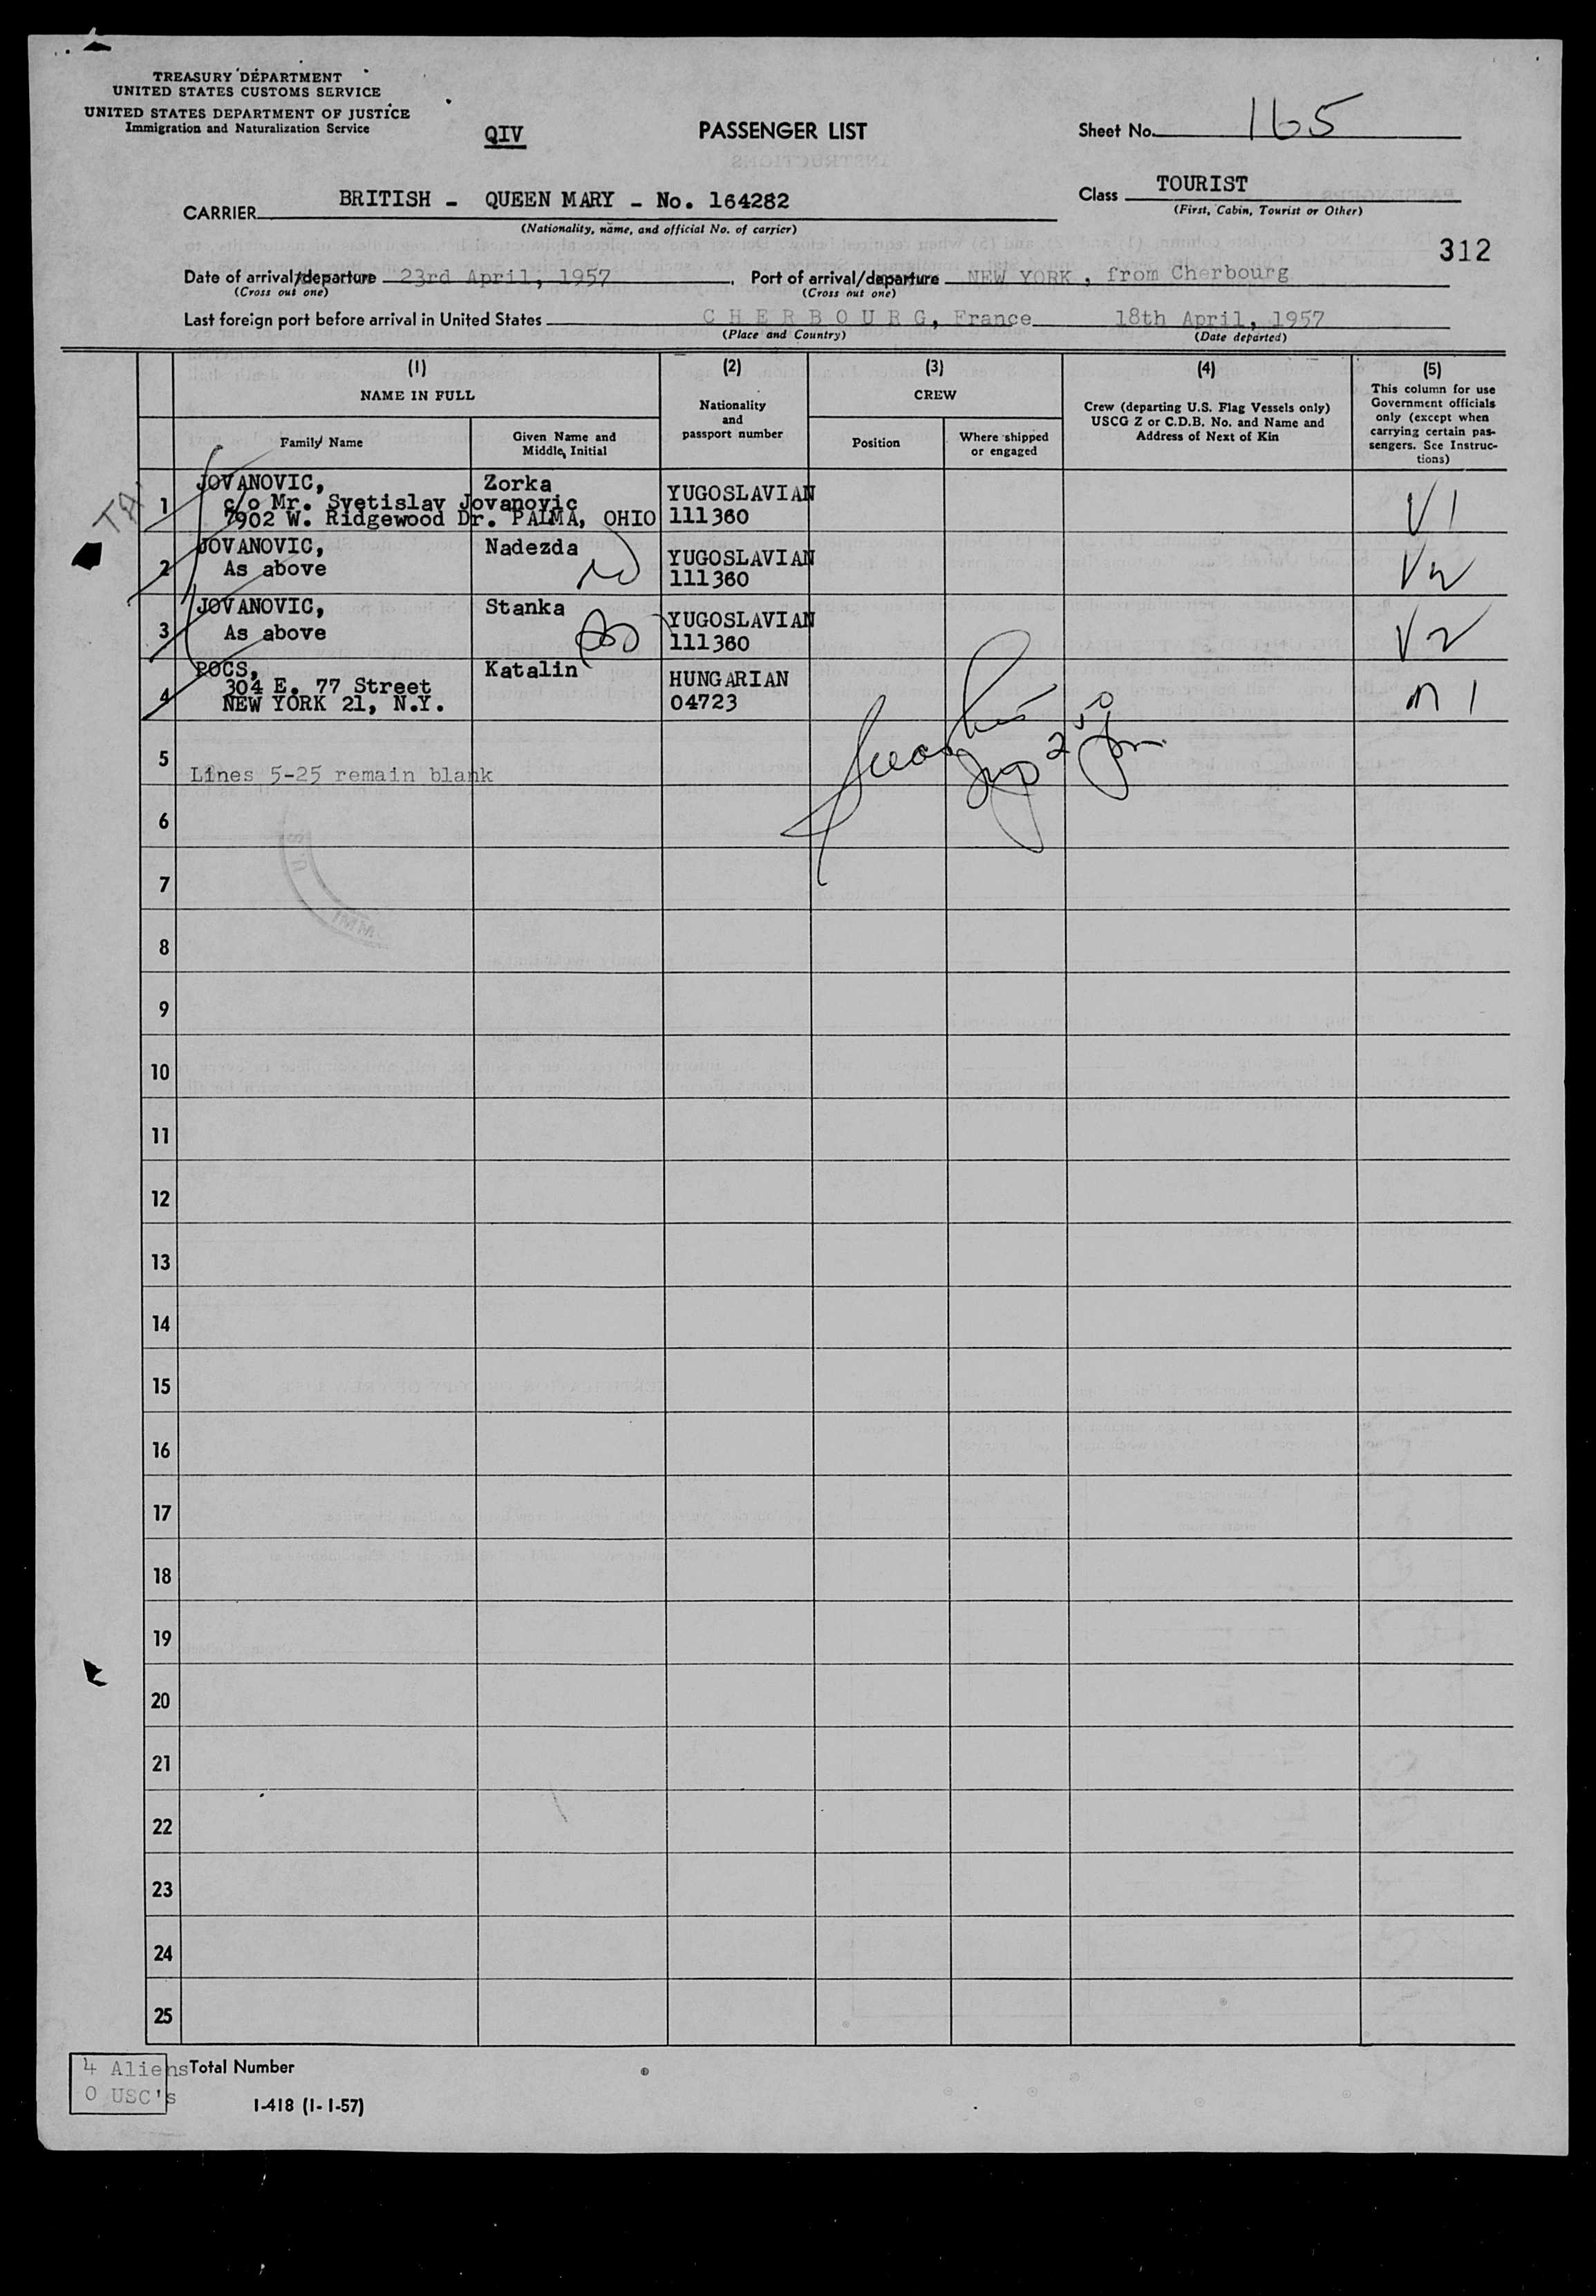 TREASURY DEPARTMENT
UNITED STATES CUSTOMS SERVICE
UNITED STATES DEPARTMENT OF JUSTICE
Immigration and Naturalization Service
QIV
PASSENGER LIST
Sheet No. 165
CARRIER BRITISH - QUEEN MARY - No. 164282
(Nationality, name, and official No. of carrier)
Class TOURIST
(First, Cabin, Tourist or Other)
312
Date of arrival/departure 23rd April, 1957. Port of arrival/departure NEW YORK, from Cherbourg
(Cross out one) (Cross out one)
Last foreign port before arrival in United States CHERBOURG, France 18th April, 1957
(Place and Country) (Date departed)
(1) (2) (3) (4) (5)
NAME IN FULL
Family Name
Given Name and
Middle, Initial
Nationality
and
passport number
CREW
Position
Where shipped
or engaged
Crew (departing U.S. Flag Vessels only)
USCG Z or C.D.B. No. and Name and
Address of Next of Kin
This column for use
Government officials
only (except when
carrying certain pas-
sengers. See Instruc-
tions)
1 JOVANOVIC, Zorka YUGOSLAVIAN V1
c/o Mr. Svetislav Jovanovic
7902 W. Ridgewood Dr. PALMA, OHIO 111360
2 JOVANOVIC, Nadezda YUGOSLAVIAN V2
As above 111360
3 JOVANOVIC, Stanka YUGOSLAVIAN V2
As above 111360
4 POCS, Katalin HUNGARIAN n 1
304 E. 77 Street
NEW YORK 21, N.Y. 04723
5 Lines 5-25 remain blank
6
7
8
9
10
11
12
13
14
15
16
17
18
19
20
21
22
23
24
25
4 Aliens Total Number
0 USC's
I-418 (1-1-57)